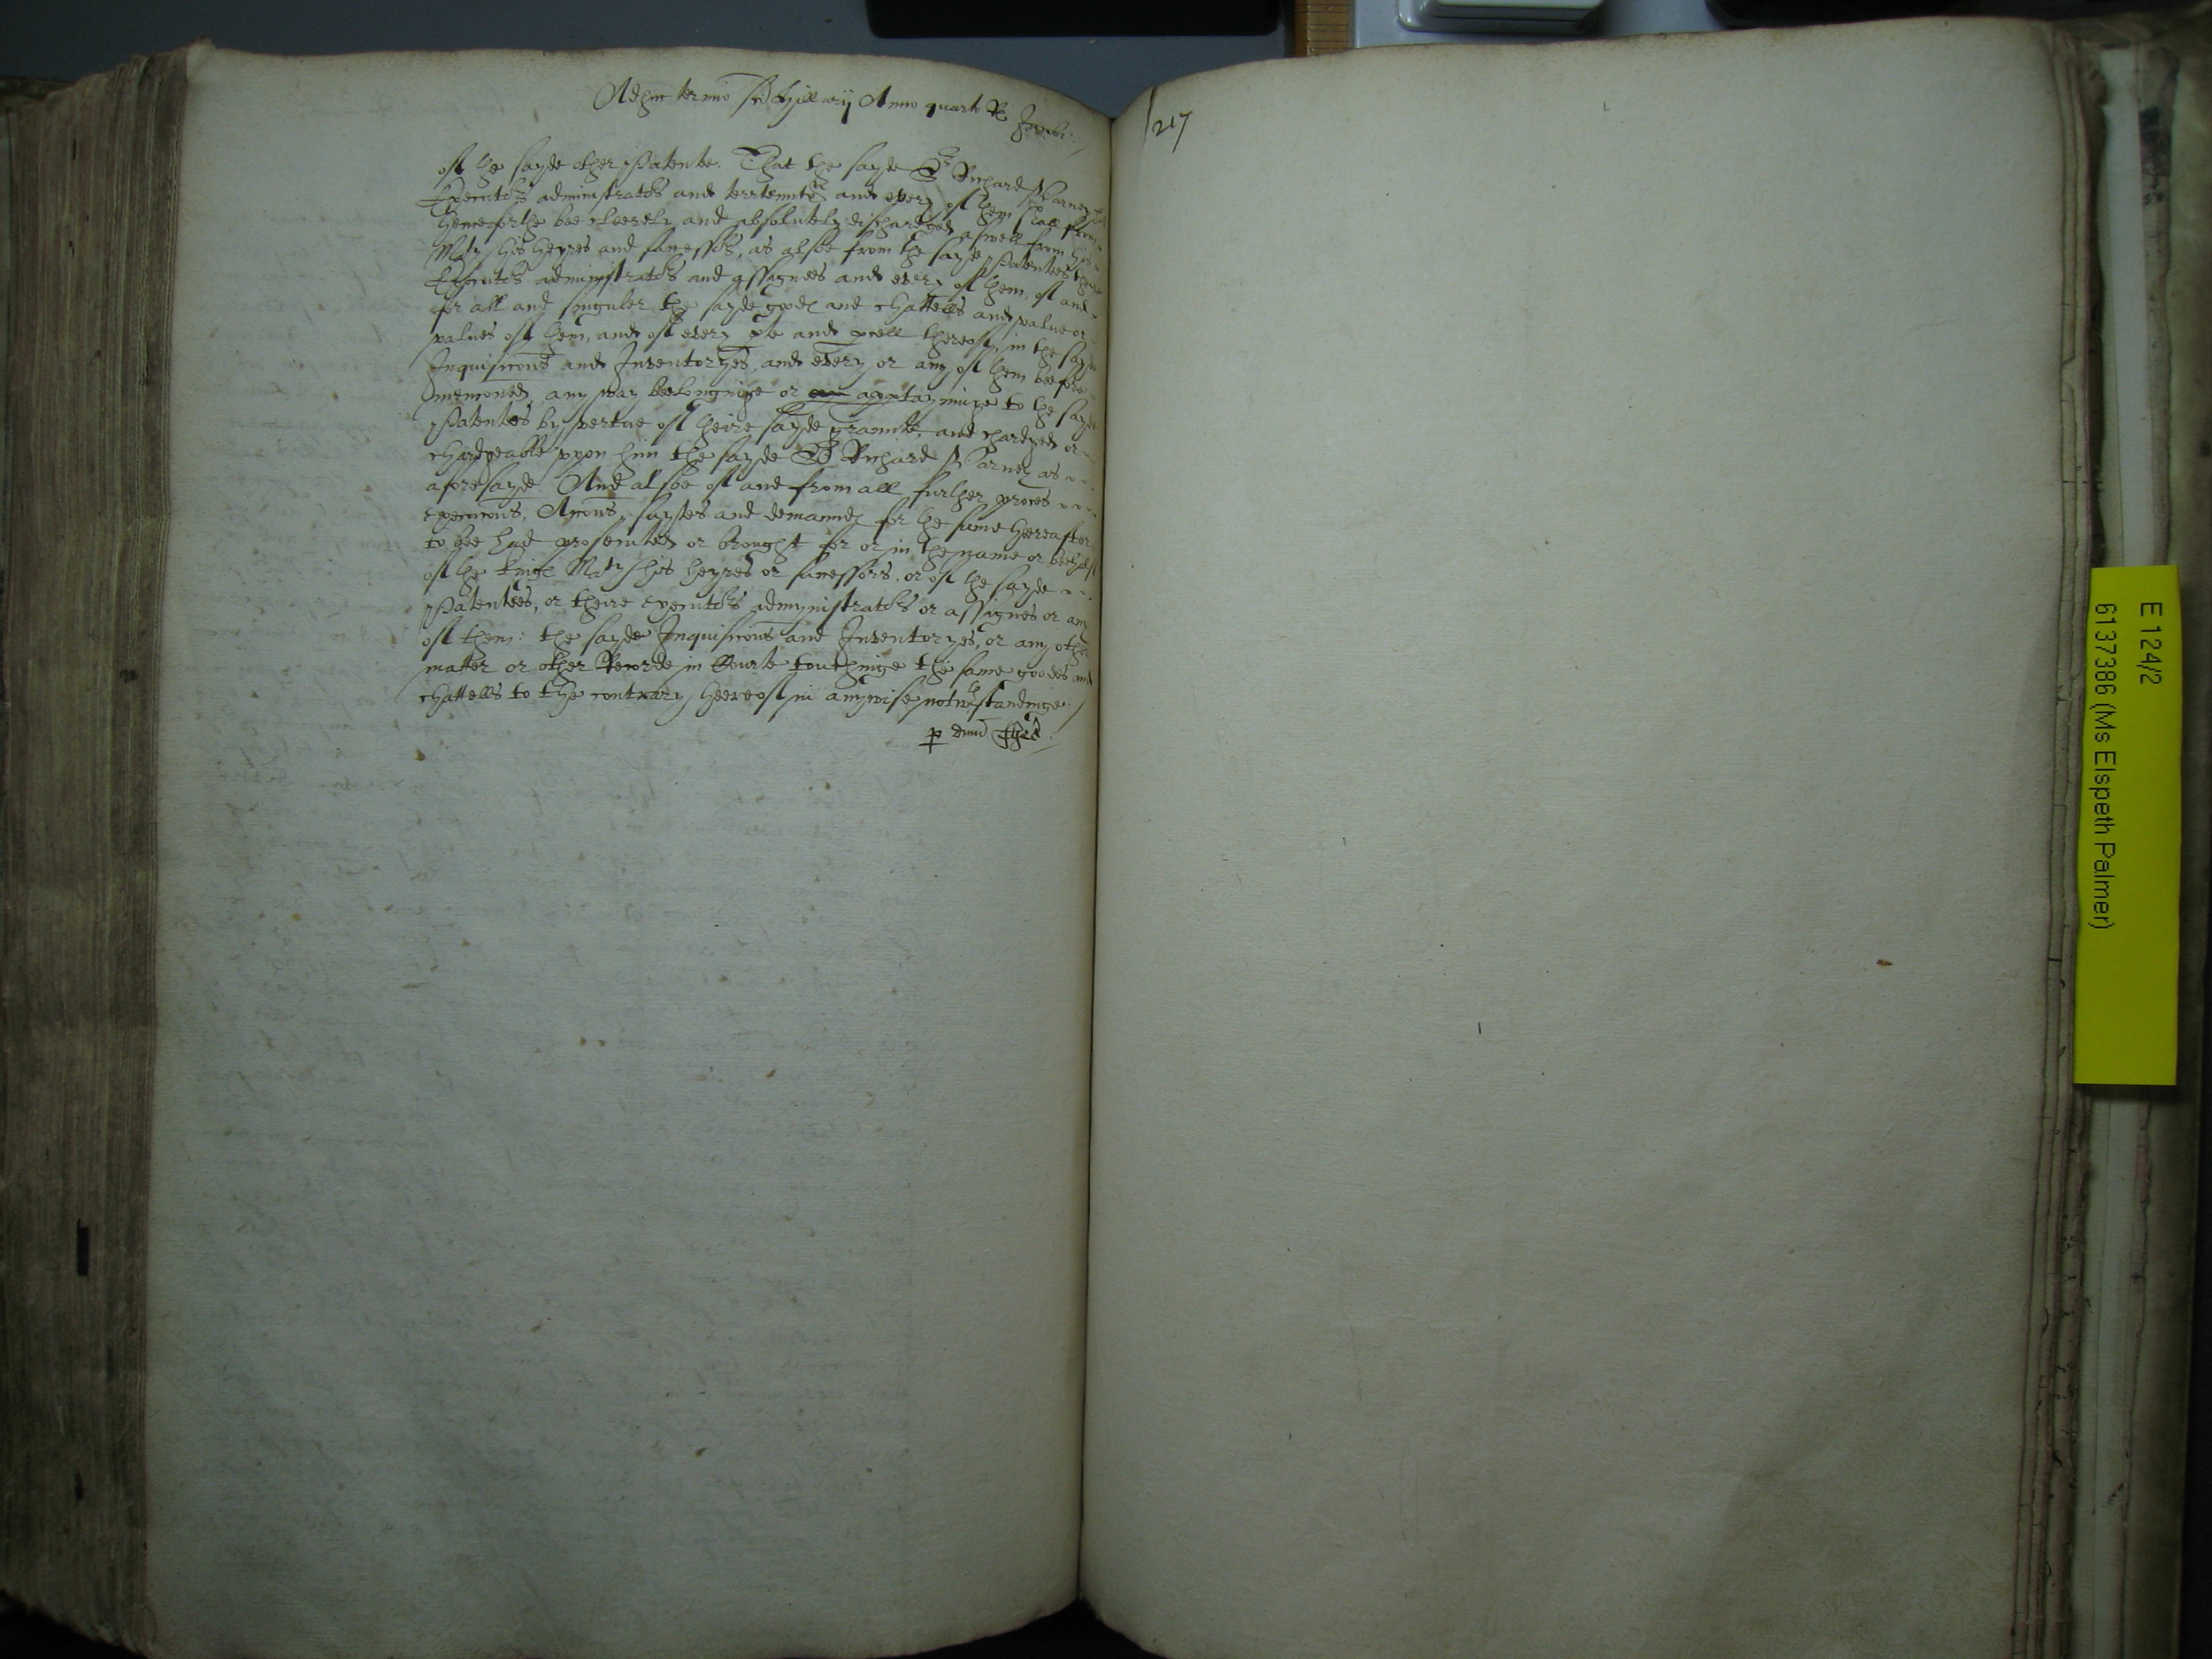 Adhuc termio Sci Hillarij Anno quarto R Jacobi
of the sayde other Patente. That the sayde Sr Richard Warney his
Executors administrators and terrtennts and every of them shall from
henceforthe bee cleerely and absolutely discharged aswell from his
Maty his heyres and successors, as alsoe from the sayde Patentees theire
Executors administrators and assignees and every of them, of and
for all and singuler the sayde goods and chattells and value or
values of them, and of every pte and pcell thereof, in the sayde
Inquisicons and Inventoryes, and every or any of them beefore
mencioned any way beelonginge or apptayninge to the sayde
Patentees by vertue of theire sayde graunte, and chardged or
chardgeable vppon him the sayde Sr Richard Warney as
aforesayde. And alsoe of and from all further proces
execucons, Accons, suytes and demaunds for the same heereafter
to bee had prosecuted or brought for or in the name or beehalf
of the Kings Maty his heyres or successors, or of the sayde
Patentees, or theire executors admynistrators or assignes or any
of them: the sayde Inquisicons and Inventoryes, or any other
matter or other Recorde in Courte touchinge the same goodes and
chattells to the contrary heereof in anywise notwthstandinge.
p dnm Thes
217
E 124/2
6137386 (Ms Elspeth Palmer)